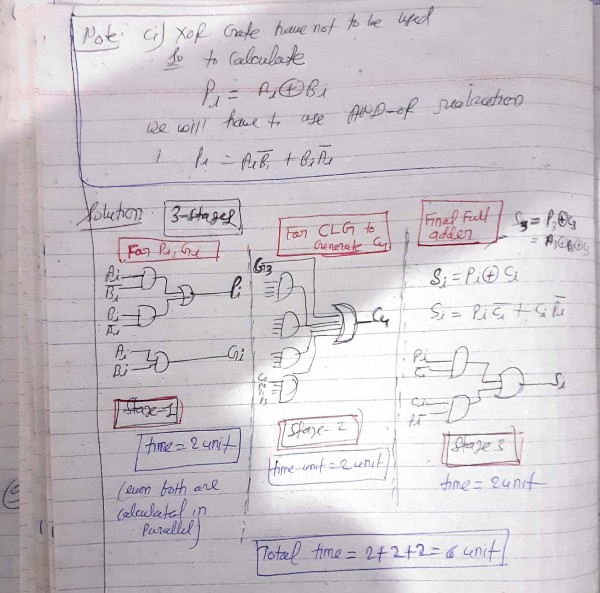 Note: (i) XOR Gate have not to be used
So to Calculate
Pi = Ai ⊕ Bi
we will have to use AND-OR realization
i Pi = Ai B̅i + Bi A̅i
Solution 3-stages
For Pi, Gi
Ai
B̅i
Bi
A̅i
Pi
Ai
Bi
Gi
Stage-1
time = 2 unit
(even both are
calculated in
Parallel)
For CLG to
Generate C4
G3
C4
C0
Stage-2
time unit = 2 unit
Final Full
adder
S3 = P3 ⊕ C3
Si = Pi ⊕ Ci
Si = Pi C̅i + Ci P̅i
Pi
C̅i
Ci
P̅i
Si
Stage 3
time = 2 unit
Total time = 2+2+2 = 6 unit